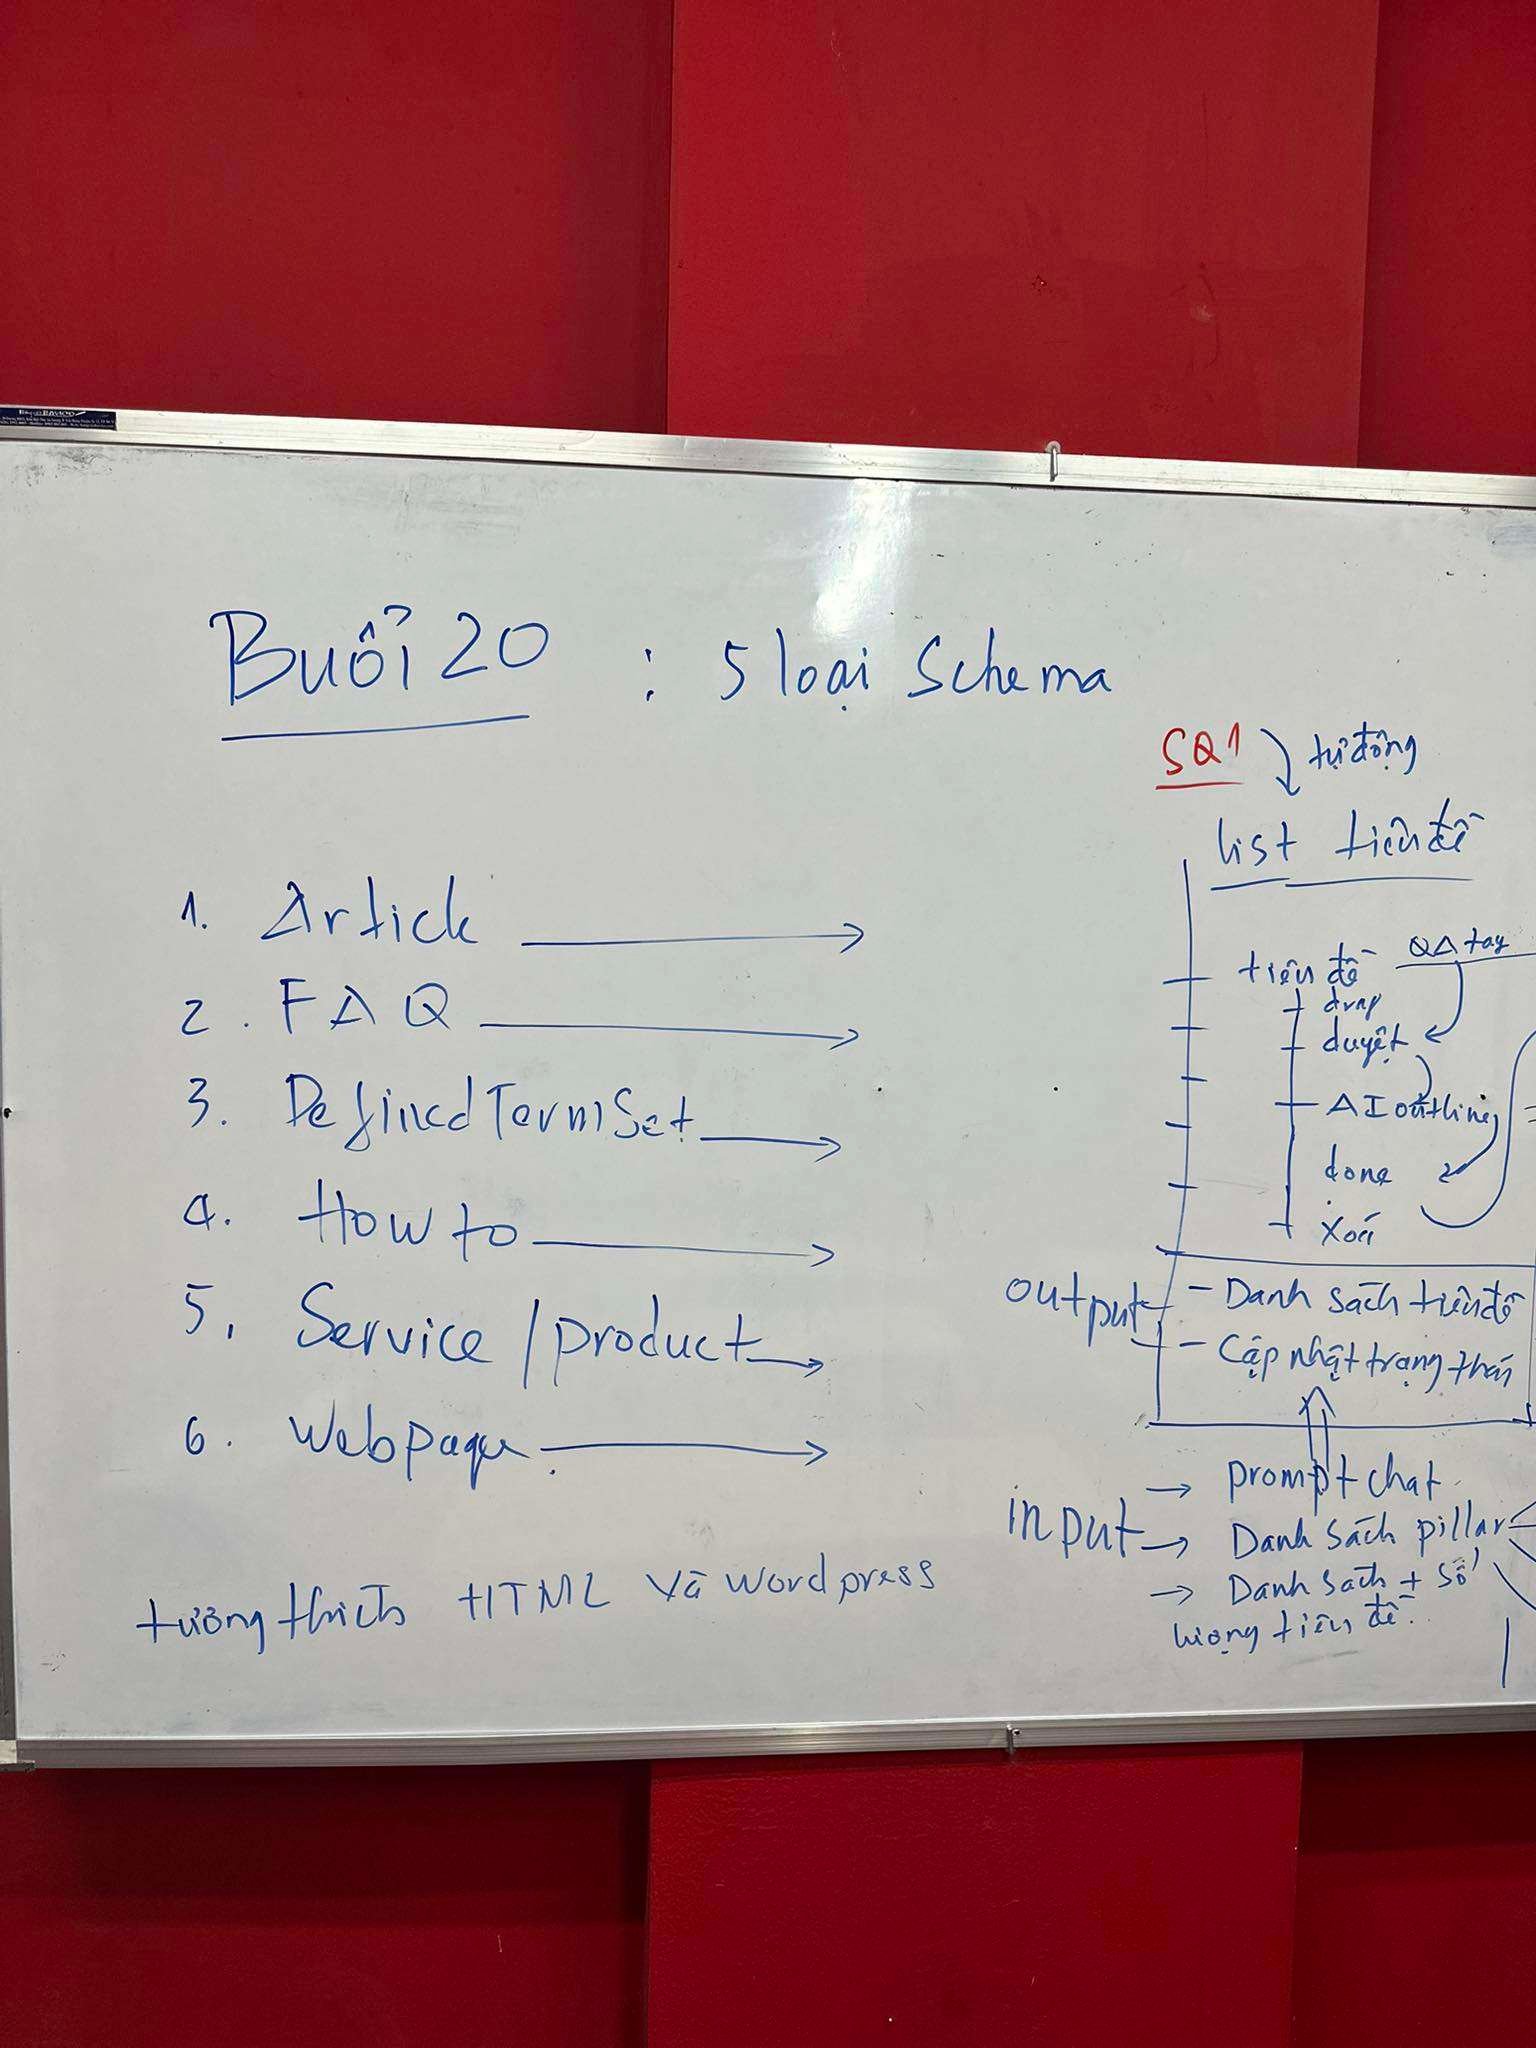 Buổi 20 : 5 loại Schema
1. Article
2. FAQ
3. DefinedTermSet
4. How to
5. Service / product
6. Webpage
tương thích HTML và Wordpress
SQ1 tự động
list tiêu đề
tiêu đề QA tay
duyệt
AI outline
done
Xoá
output
- Danh sách tiêu đề
- Cập nhật trạng thái
input
→ prompt chat
→ Danh sách pillar
→ Danh sách + số
lượng tiêu đề